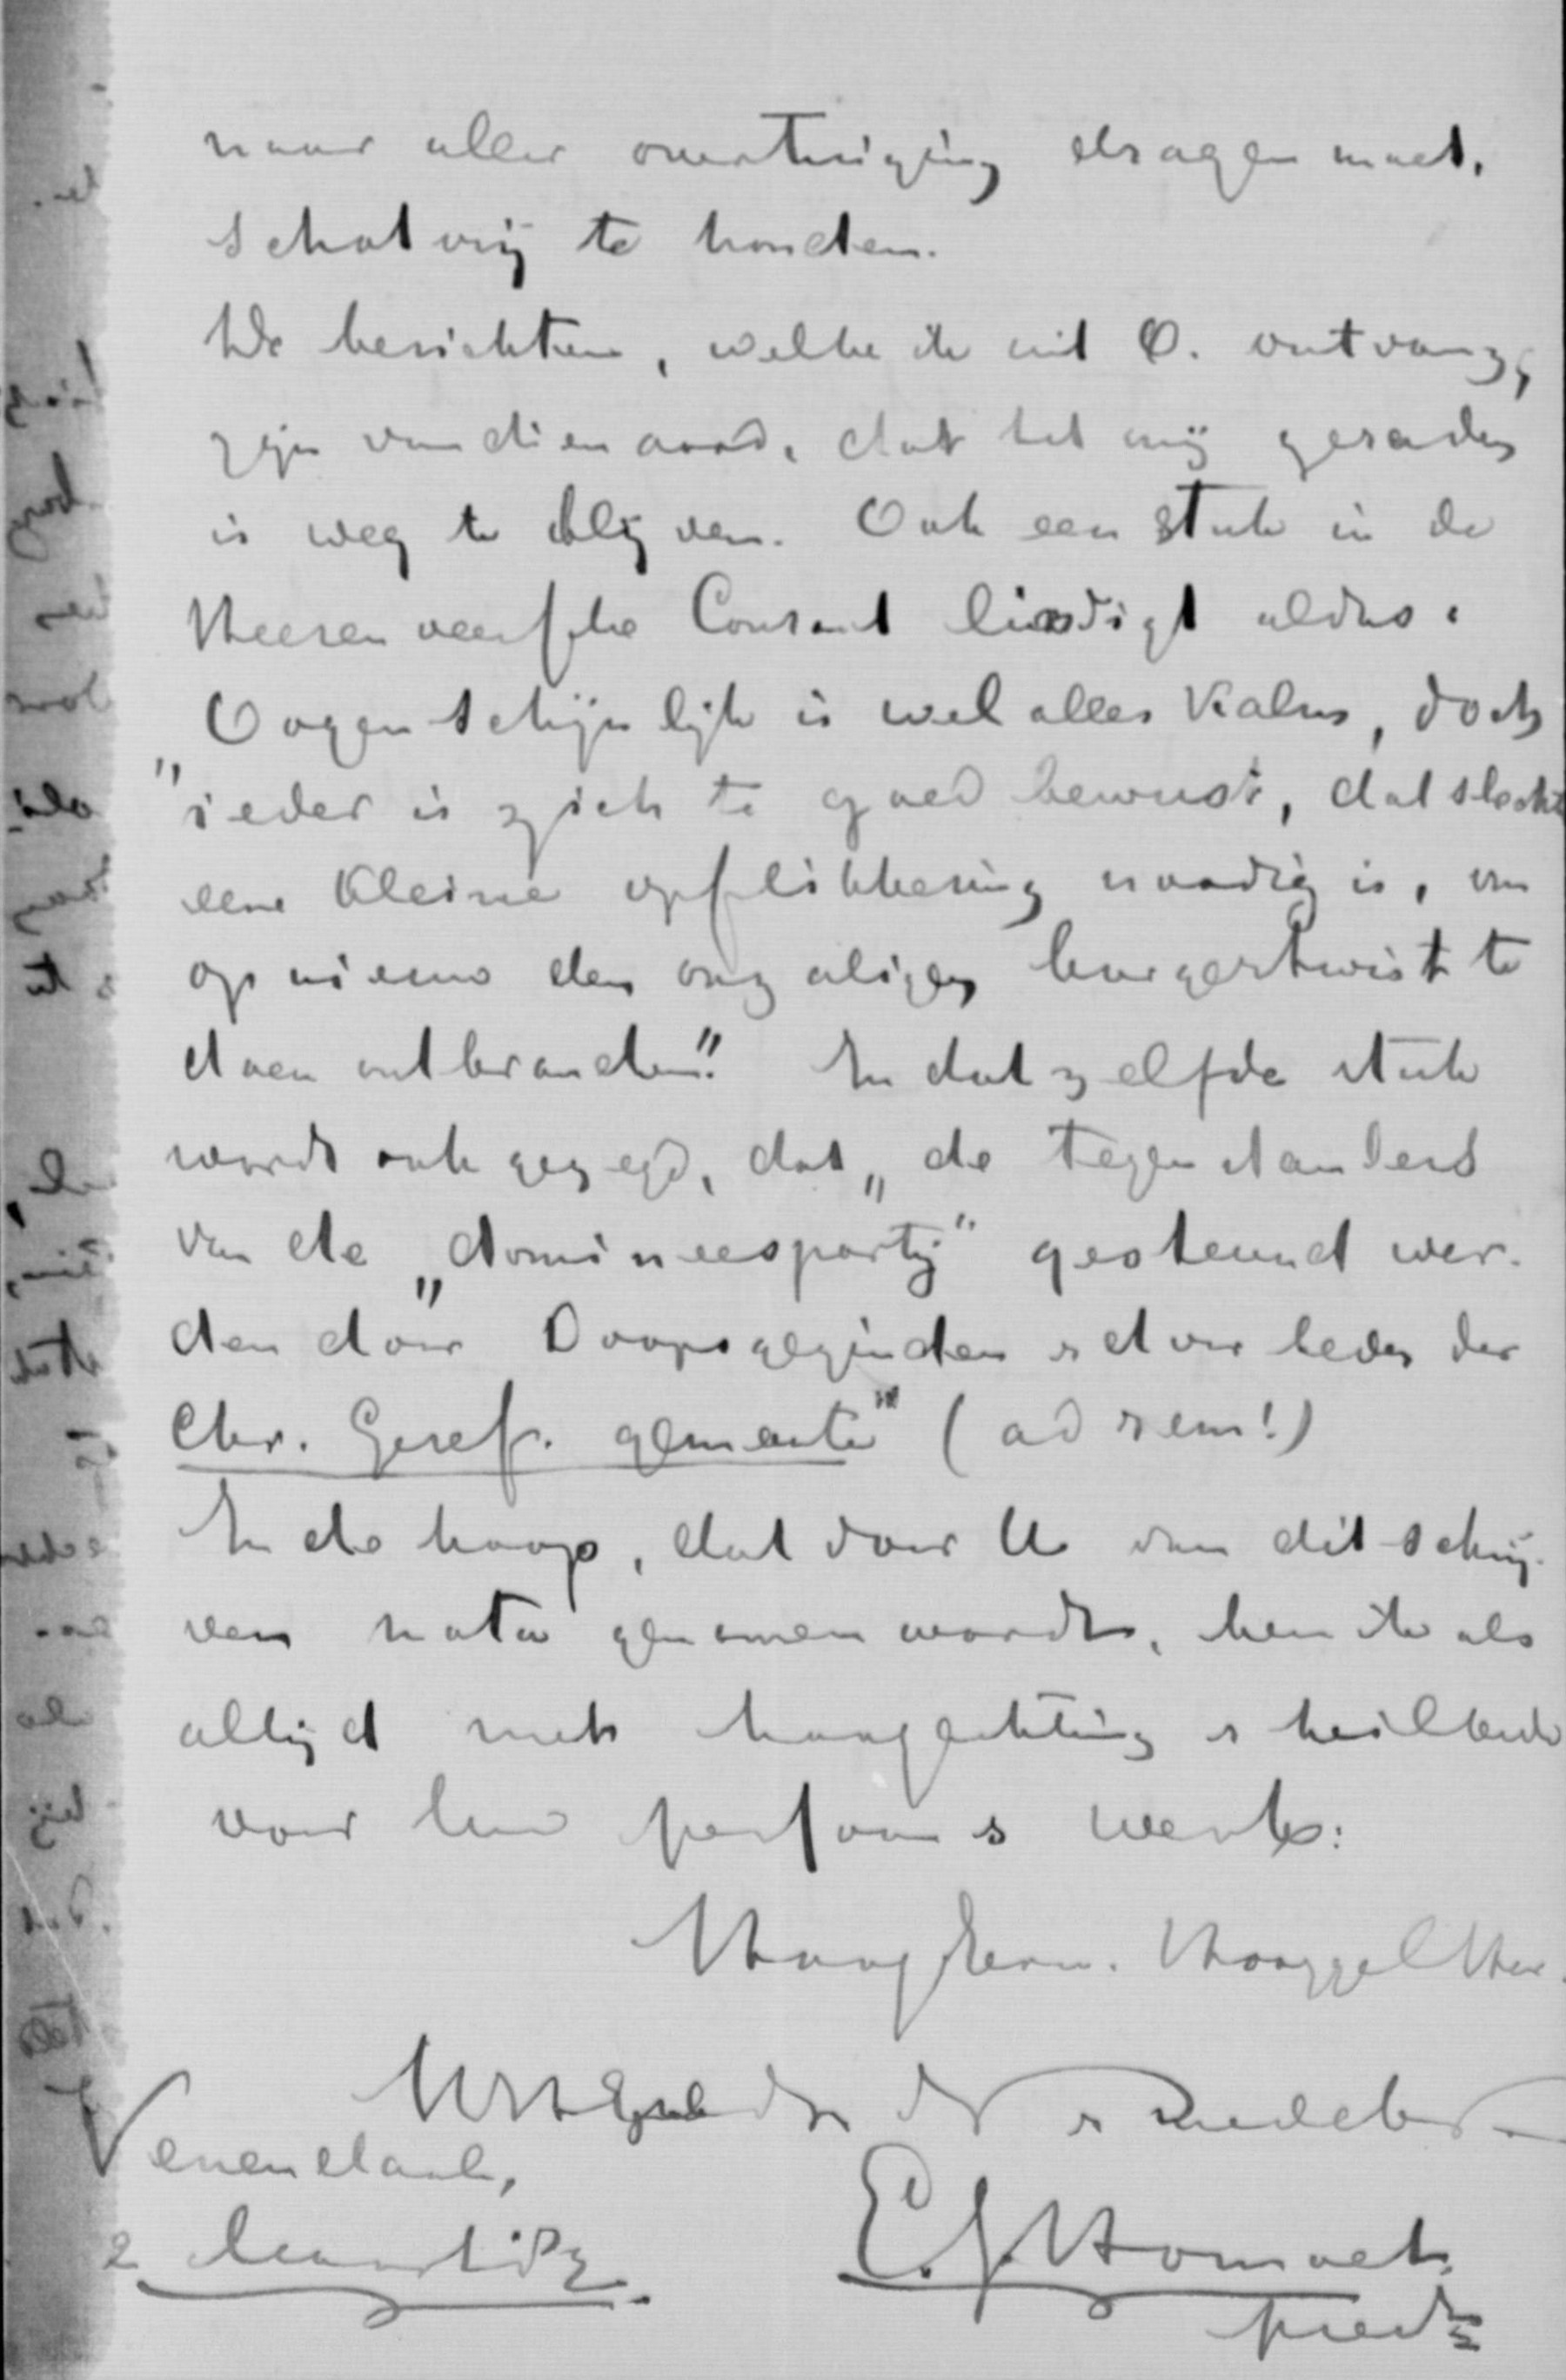 naar aller overtuiging dragen moet,
schotvrij te houden.
De berichten, welke ik uit O. ontvang,
zijn van dien aard, dat het mij geraden
is weg te blijven. Ook een stuk in de
Heerenveensche Courant eindigt aldus:
„Oogenschijnlijk is wel alles kalm, doch
ieder is zich te goed bewust, dat slechts
eene kleine opflikkering noodig is, om
opnieuw den onzaligen burgertwist te
doen ontbranden." In datzelfde stuk
wordt ook gezegd, dat „de tegenstanders
van de „domineespartij" gesteund wer-
den door Doopsgezinden & door leden der
Chr. Geref. gemeente" (ad rem!)
In de hoop, dat door U van dit schrij-
ven nota genomen wordt, ben ik als
altijd met hoogachting & heilbede
voor Uw persoon & werk:
Hoogeerw. Hooggel Heer.
Uw
Veenendaal,
E. J. Homoet.
pred.